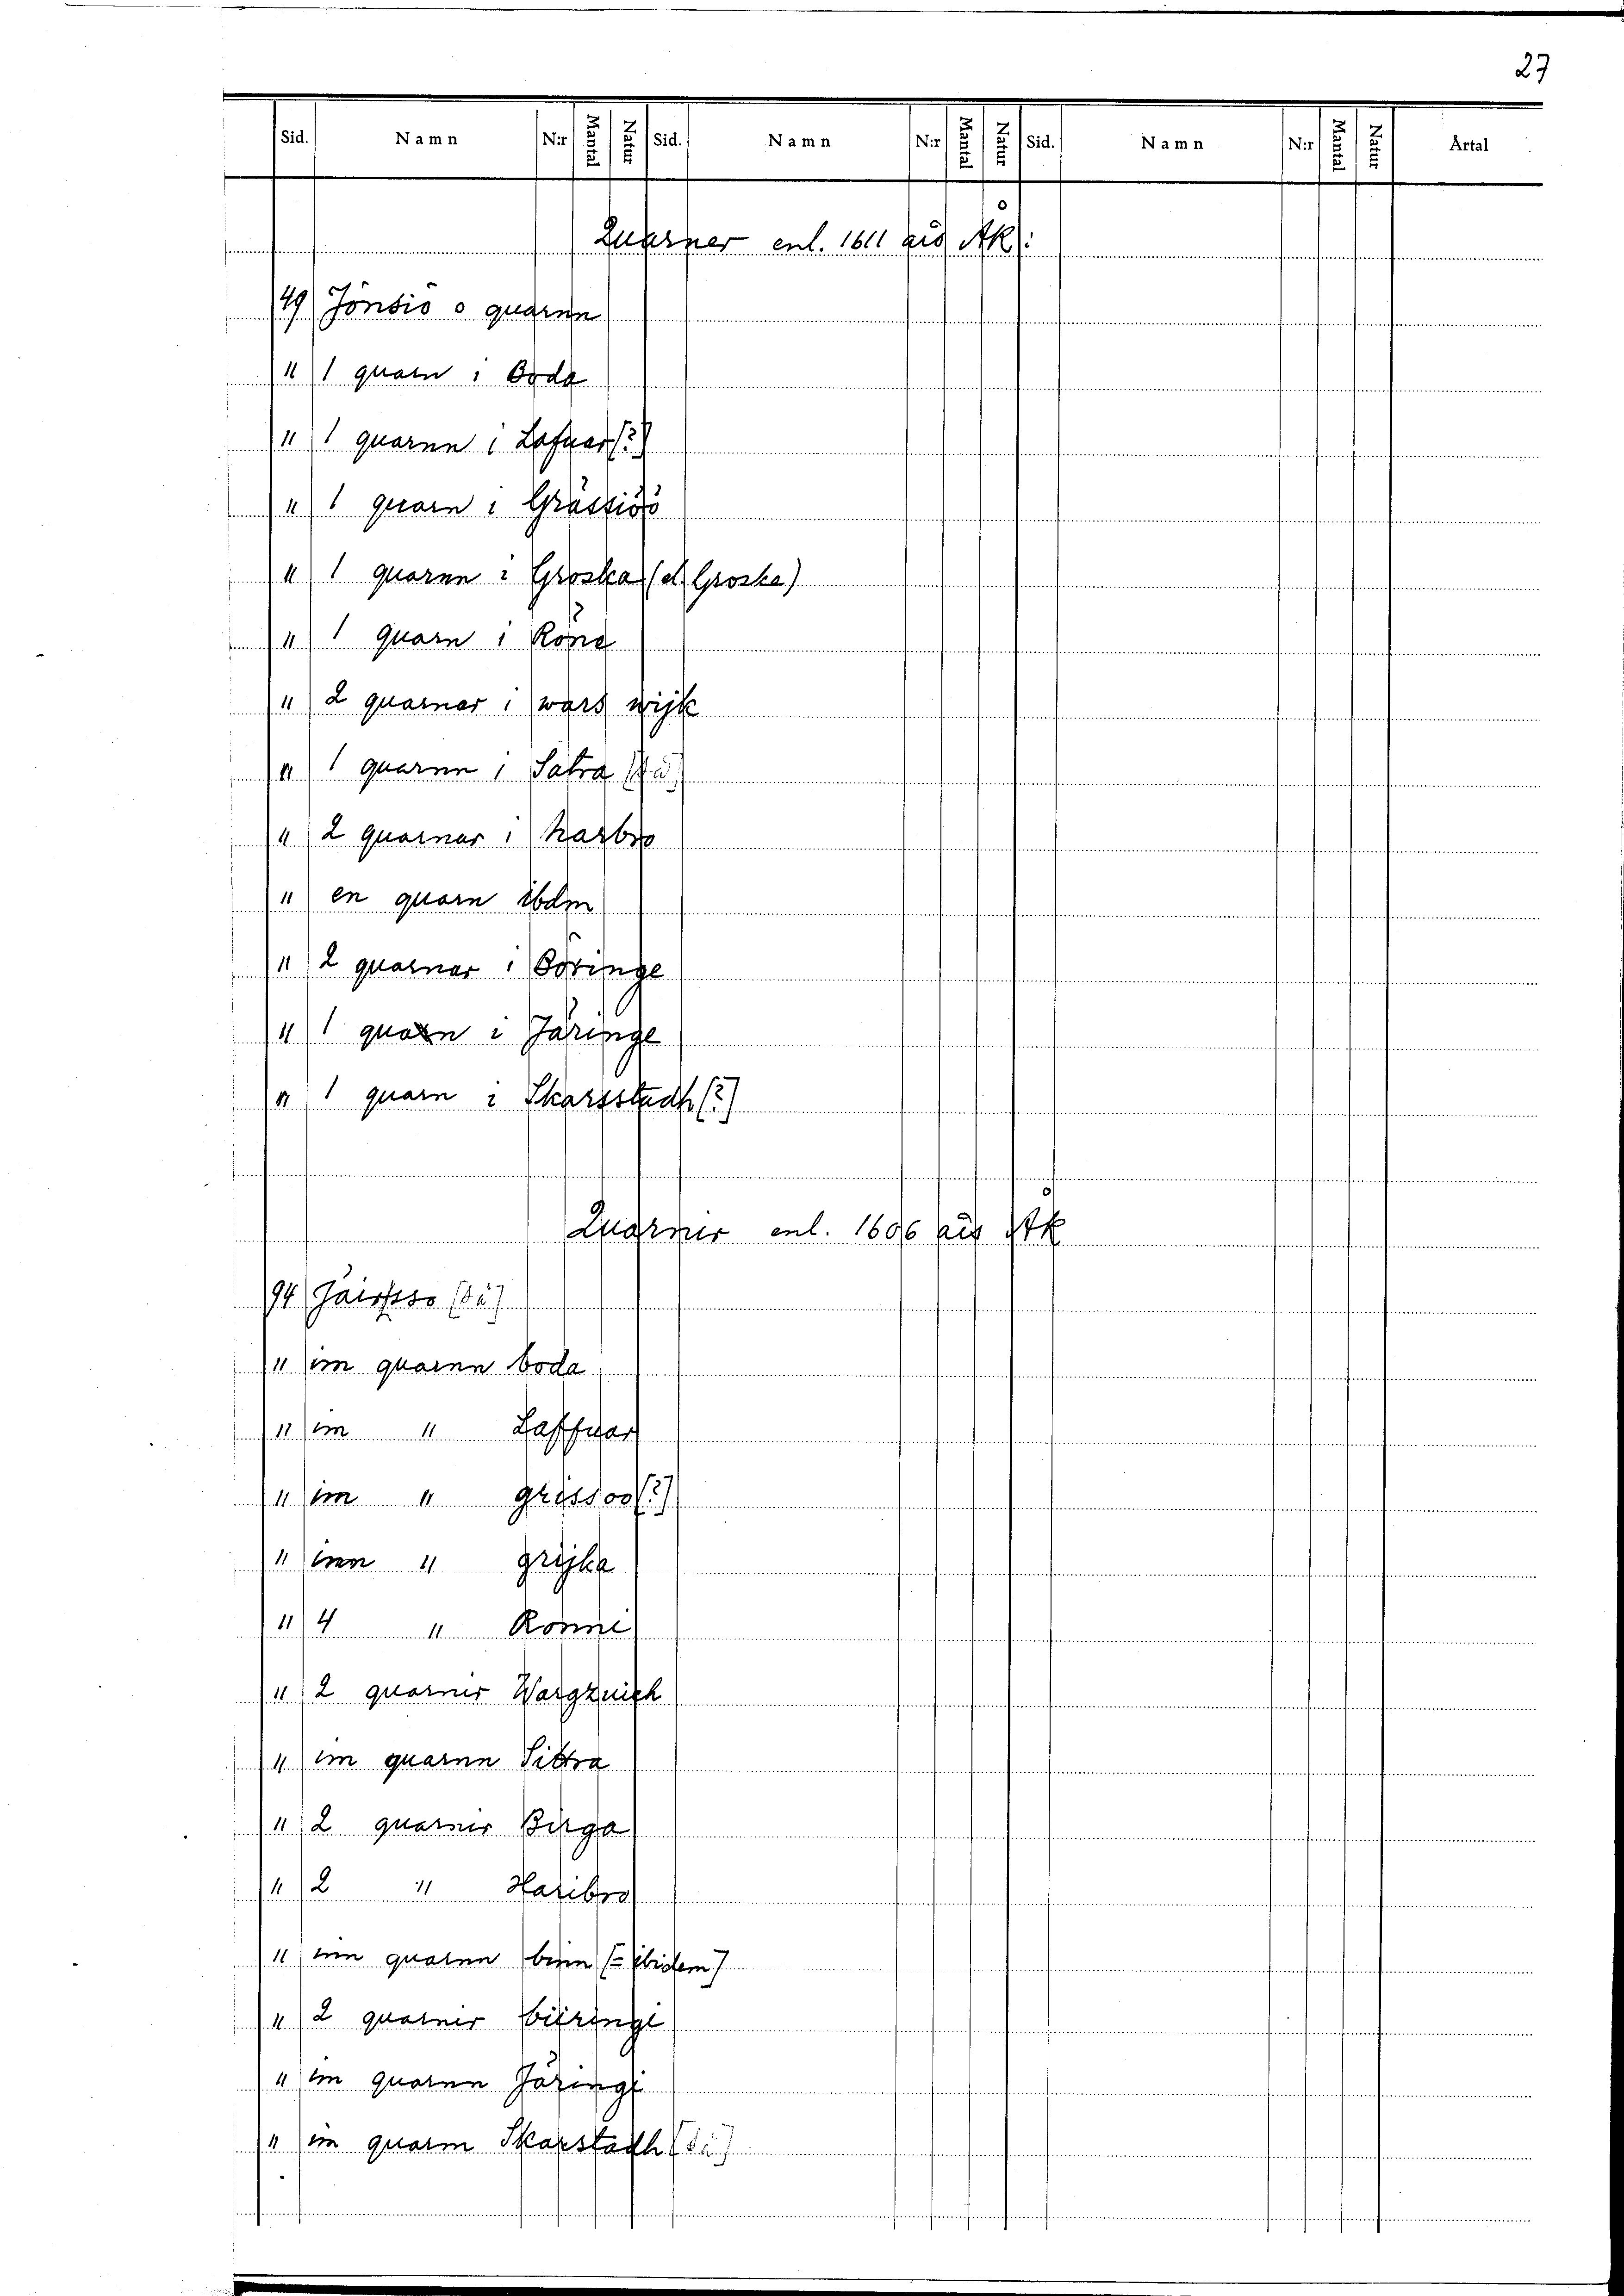 27
Sid. Namn N:r Mantal Natur Sid. Namn N:r Mantal Natur Sid. Namn N:r Mantal Natur Årtal
Quarner enl. 1611 års ÅK:
49 Jönsiö o quarnn
" 1 quarn i Boda
" 1 quarnn i Lafuar [?]
" 1 quarn i Grässiöö
" 1 quarnn i Groska (el. Groske)
" 1 quarn i Röne
" 2 quarnar i wars wijk
" 1 quarnn i Satra [så]
" 2 quarnar i harbro
" en quarn ibdm
" 2 quarnar i Böringe
" 1 quarn i Järinge
" 1 quarn i Skarsstadh [?]
Quarner enl. 1606 års ÅK
94 [så]
" im quarnn boda
" im " Laffuar
" im " grissoo [?]
" inn " grijka
" 4 " Ronni
" 2 quarnir Wargzuich
" im quarnn Sittra
" 2 quarnir Birga
" 2 " Haribro
" inn quarnn binn [= ibidem]
" 2 quarnir biiringi
" im quarnn Järingi
" im quarm Skarstadh [så]